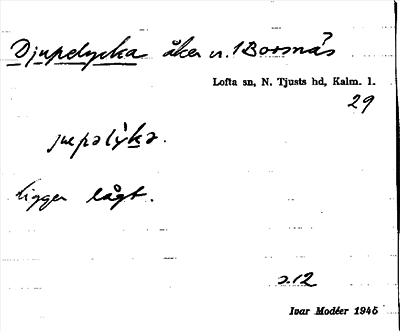 Djupelycka åker nr. 1 Borsnäs
Lofta sn, N. Tjusts hd, Kalm. l.
29
jupəlỳkə.
ligger lågt.
s.12
Ivar Modéer 1945